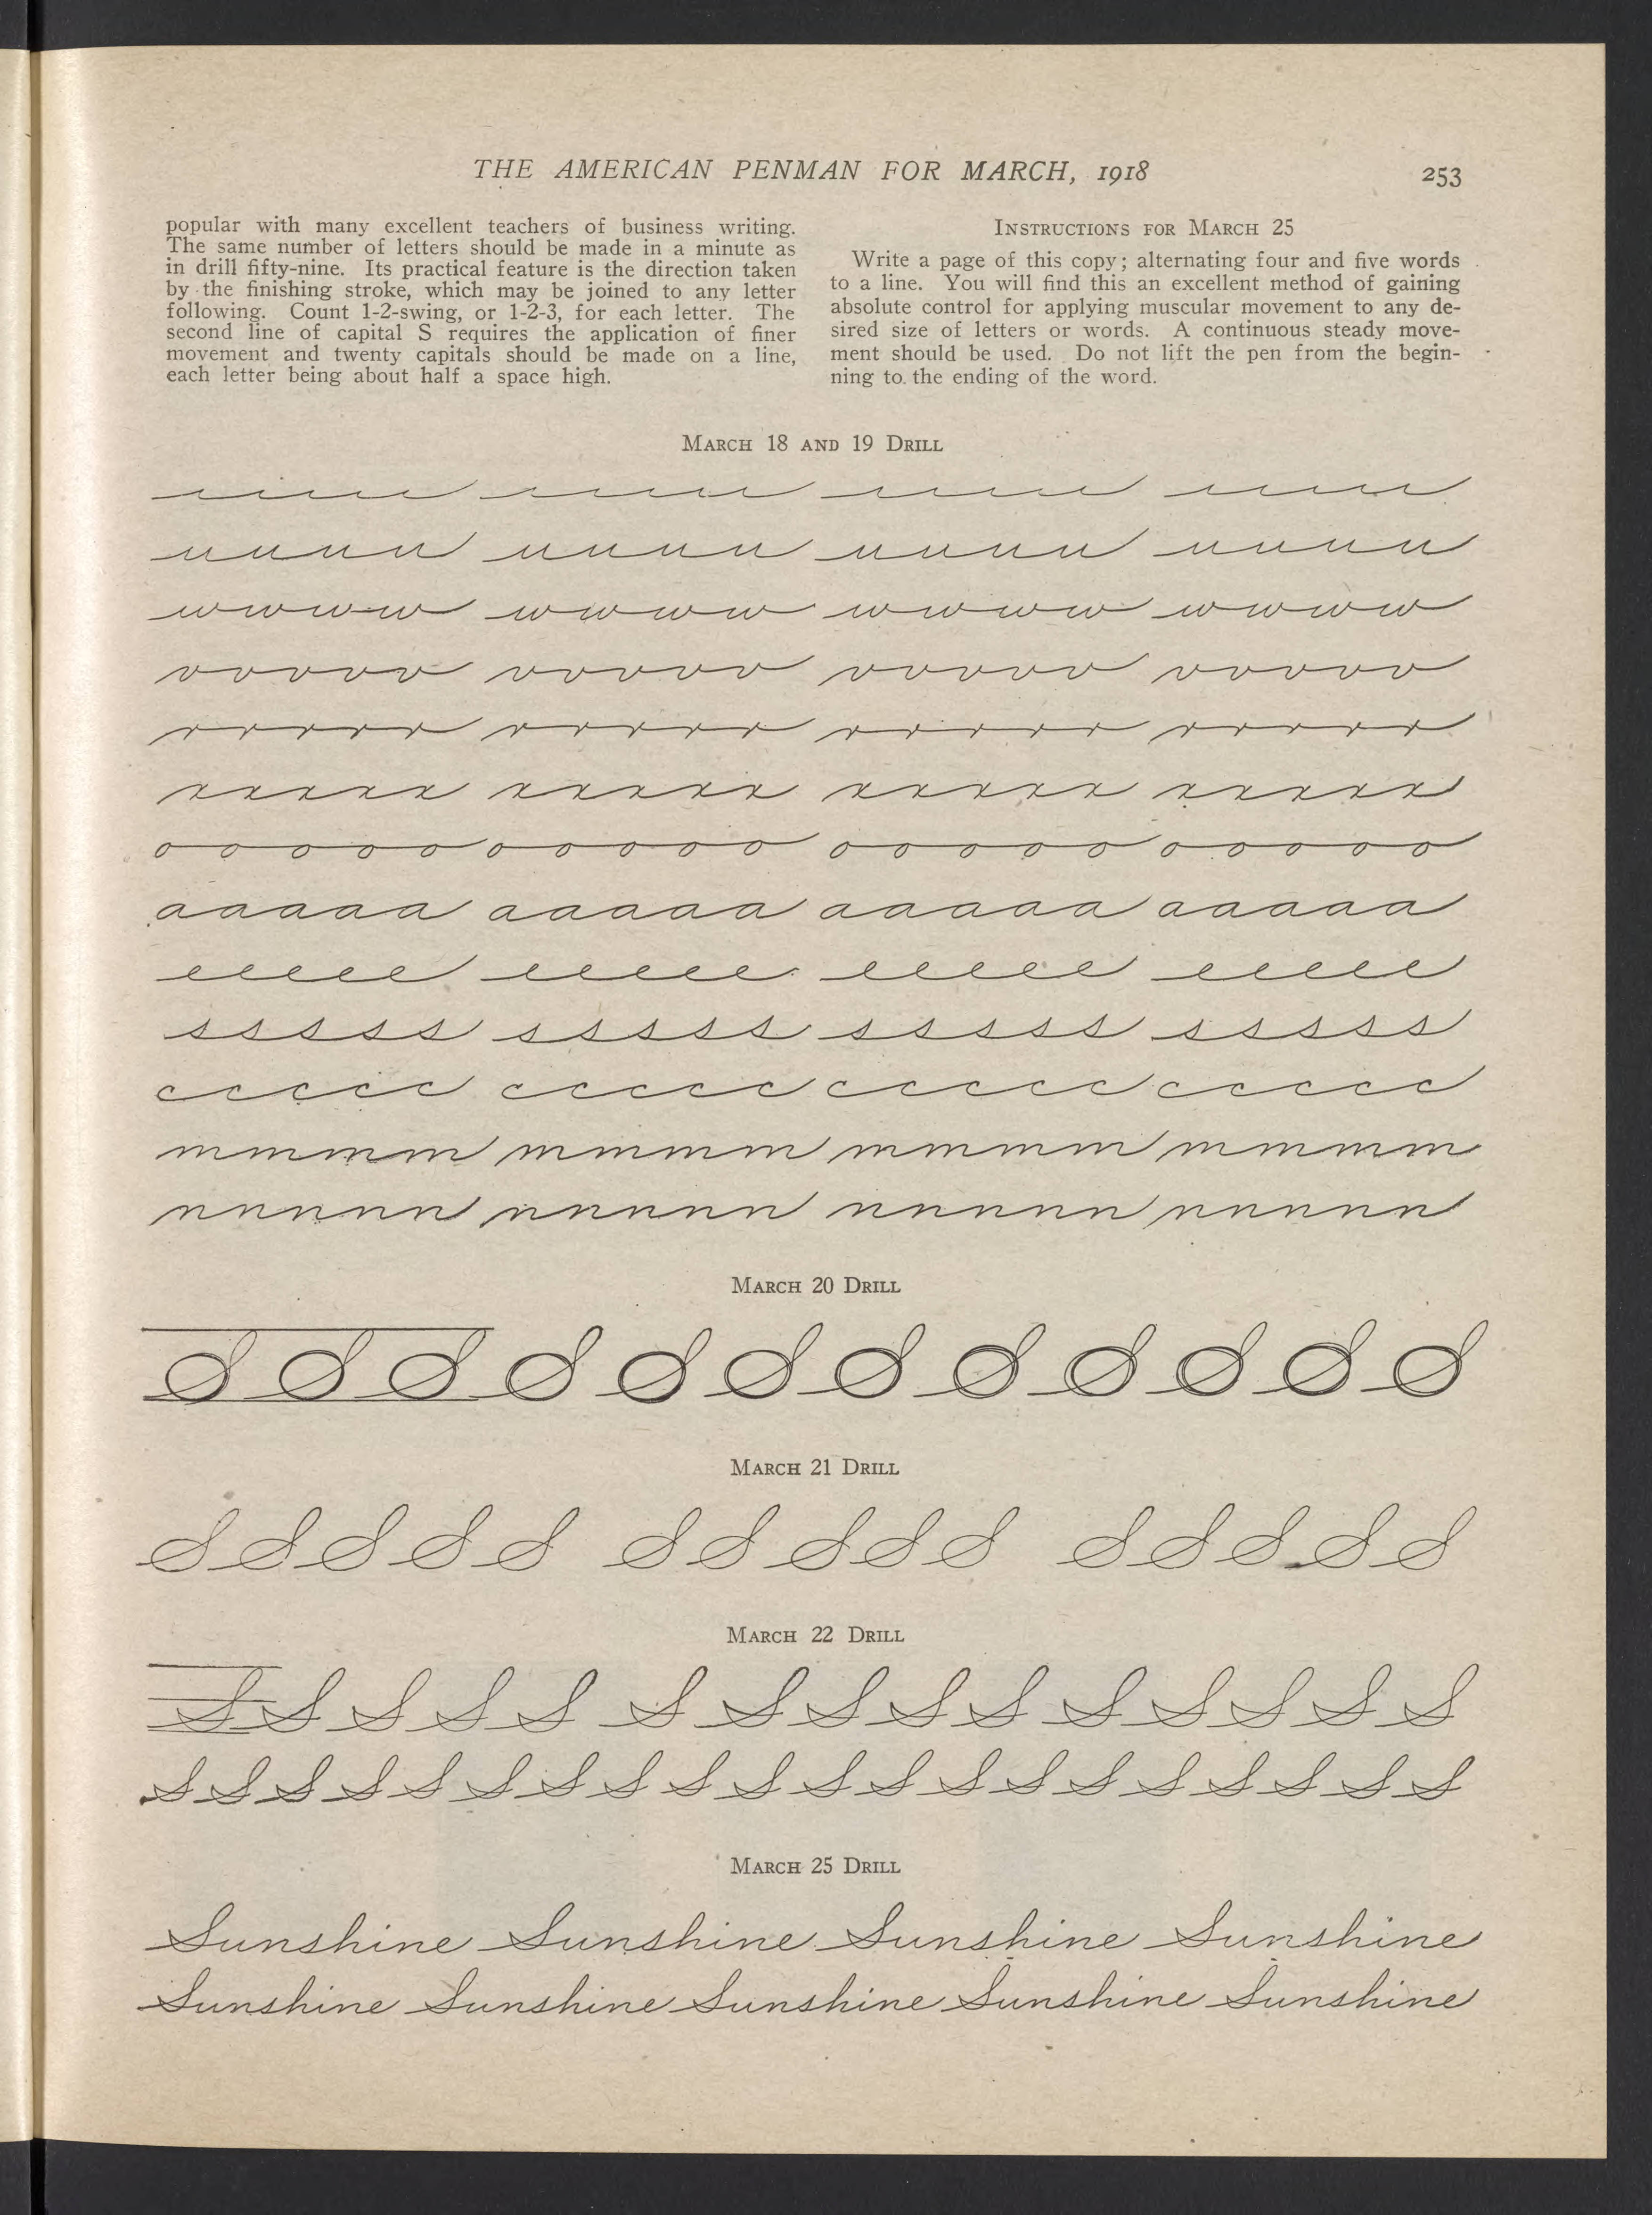 THE AMERICAN PENMAN FOR MARCH, 1918
253
popular with many excellent teachers of business writing.
The same number of letters should be made in a minute as
in drill fifty-nine. Its practical feature is the direction taken
by the finishing stroke, which may be joined to any letter
following. Count 1-2-swing, or 1-2-3, for each letter. The
second line of capital S requires the application of finer
movement and twenty capitals should be made on a line,
each letter being about half a space high.
INSTRUCTIONS FOR MARCH 25
Write a page of this copy; alternating four and five words
to a line. You will find this an excellent method of gaining
absolute control for applying muscular movement to any de-
sired size of letters or words. A continuous steady move-
ment should be used. Do not lift the pen from the begin-
ning to the ending of the word.
MARCH 18 AND 19 DRILL
uuuu uuuu uuuu uuuu
wwww wwww wwww wwww
vvvvv vvvvv vvvvv vvvvv
rrrrr rrrrr rrrrr rrrrr
xxxxx xxxxx xxxxx xxxxx
ooooo ooooo ooooo ooooo
aaaaa aaaaa aaaaa aaaaa
eeeee eeeee eeeee eeeee
sssss sssss sssss sssss
ccccc ccccc ccccc ccccc
mmmm mmmm mmmm mmmm
nnnnn nnnnn nnnnn nnnnn
MARCH 20 DRILL
S S S S S S S S S S S S
MARCH 21 DRILL
SSSSS SSSSS SSSSS
MARCH 22 DRILL
S S S S S S S S S S S S S S S
S S S S S S S S S S S S S S S S S S S S
MARCH 25 DRILL
Sunshine Sunshine Sunshine Sunshine
Sunshine Sunshine Sunshine Sunshine Sunshine